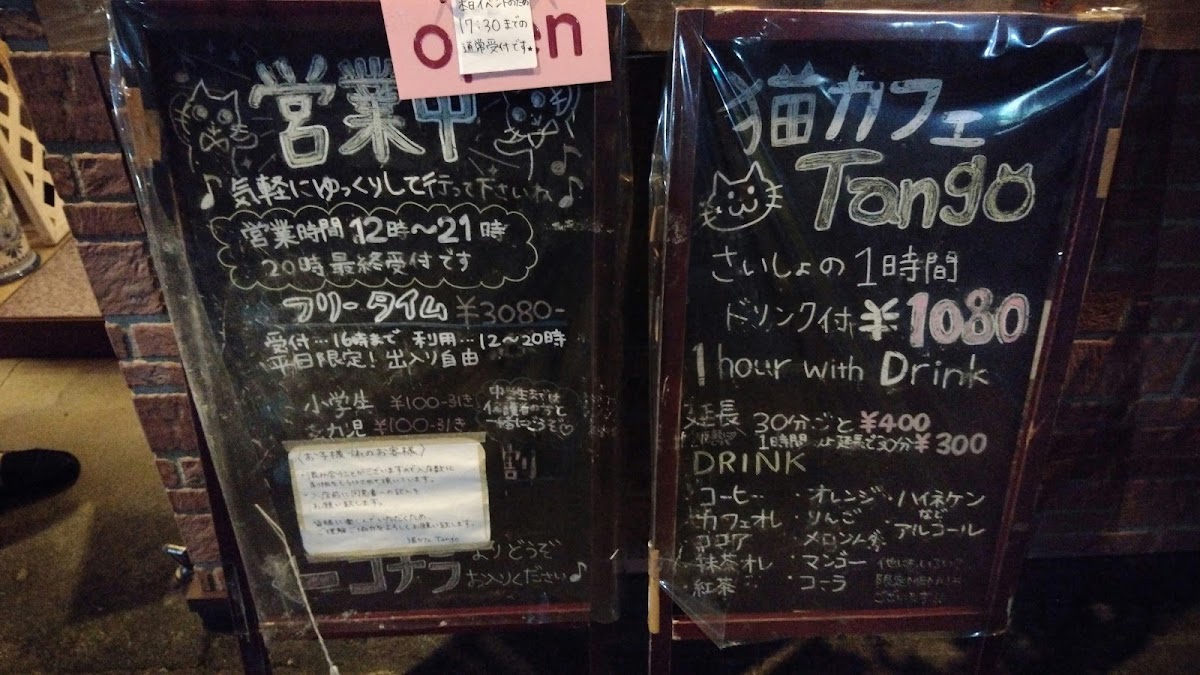 open
本日イベントのため
17:30までの
通常受付です。
営業中
気軽にゆっくりして行って下さいね♪
営業時間 12時〜21時
20時最終受付です
フリータイム ¥3080-
受付…16時まで 利用…12〜20時
平日限定! 出入り自由
小学生 ¥100-引き
幼児 ¥100-引き
中学生までは
保護者の方と
一緒にどうぞ♡
割
(お子様連れのお客様)
お願い致します。
猫カフェ Tango
コチラよりどうぞ
お入りください♪
猫カフェ
Tango
さいしょの1時間
ドリンク付 ¥1080
1 hour with Drink
延長 30分ごと ¥400
1時間 延長で30分 ¥300
DRINK
・コーヒー
・カフェオレ
・ココア
・抹茶オレ
・紅茶
・オレンジ
・りんご
・メロンソーダ
・マンゴー
・コーラ
・ハイネケン
など
アルコール
ございます